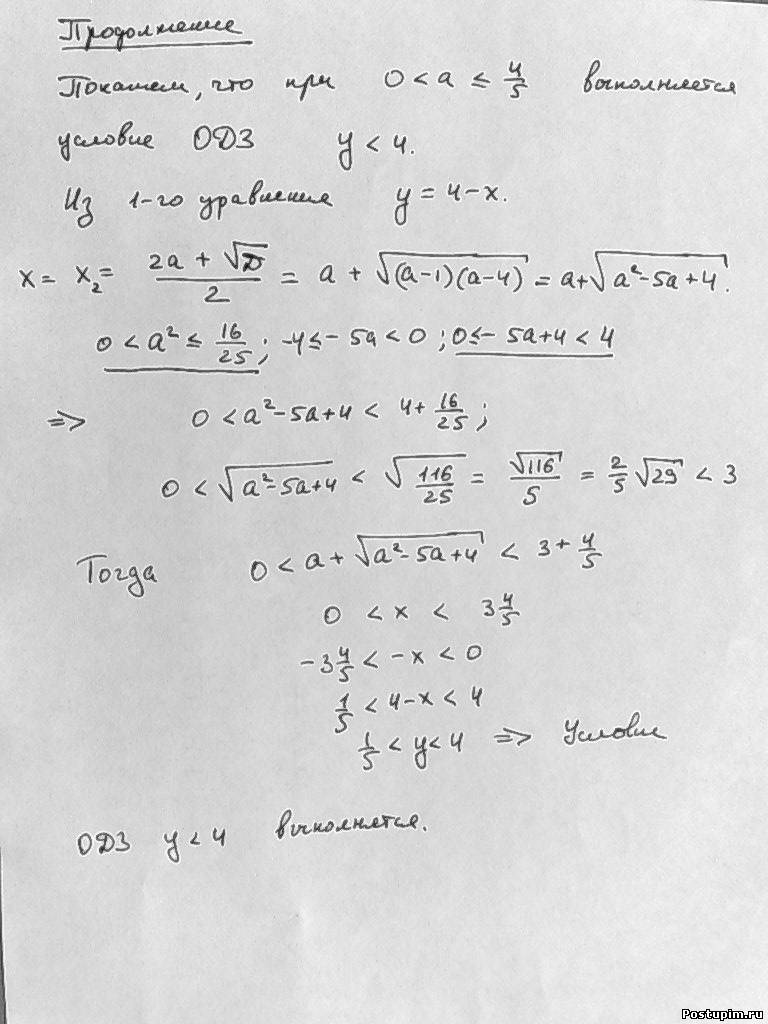 Продолжение
Покажем, что при 0 < a ≤ 4/5 выполняется
условие ОДЗ y < 4.
Из 1-го уравнения y = 4-x.
x = x₂ = (2a + √D)/2 = a + √((a-1)(a-4)) = a+√(a²-5a+4).
0 < a² ≤ 16/25; -4 ≤ -5a < 0; 0 ≤ -5a+4 < 4
=> 0 < a²-5a+4 < 4+16/25;
0 < √(a²-5a+4) < √(116/25) = √116/5 = 2/5 √29 < 3
Тогда 0 < a + √(a²-5a+4) < 3 + 4/5
0 < x < 3 4/5
-3 4/5 < -x < 0
1/5 < 4-x < 4
1/5 < y < 4 => Условие
ОДЗ y < 4 выполняется.
Postupim.ru